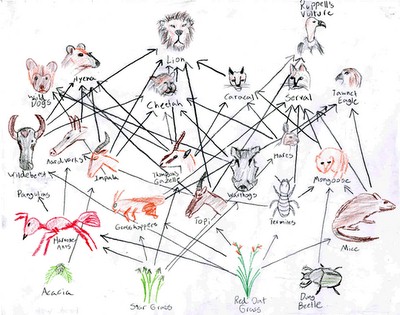 Ruppell's
Vulture
Lion
Hyena
Wild
Dogs
Cheetah
Caracal
Serval
Tawny
Eagle
Wildebeest
Aardvarks
Impala
Thomson's
Gazelle
Warthogs
Hares
Mongoose
Pangolins
Harvester
Ants
Grasshoppers
Topi
Termites
Mice
Acacia
Star Grass
Red Oat
Grass
Dung
Beetle